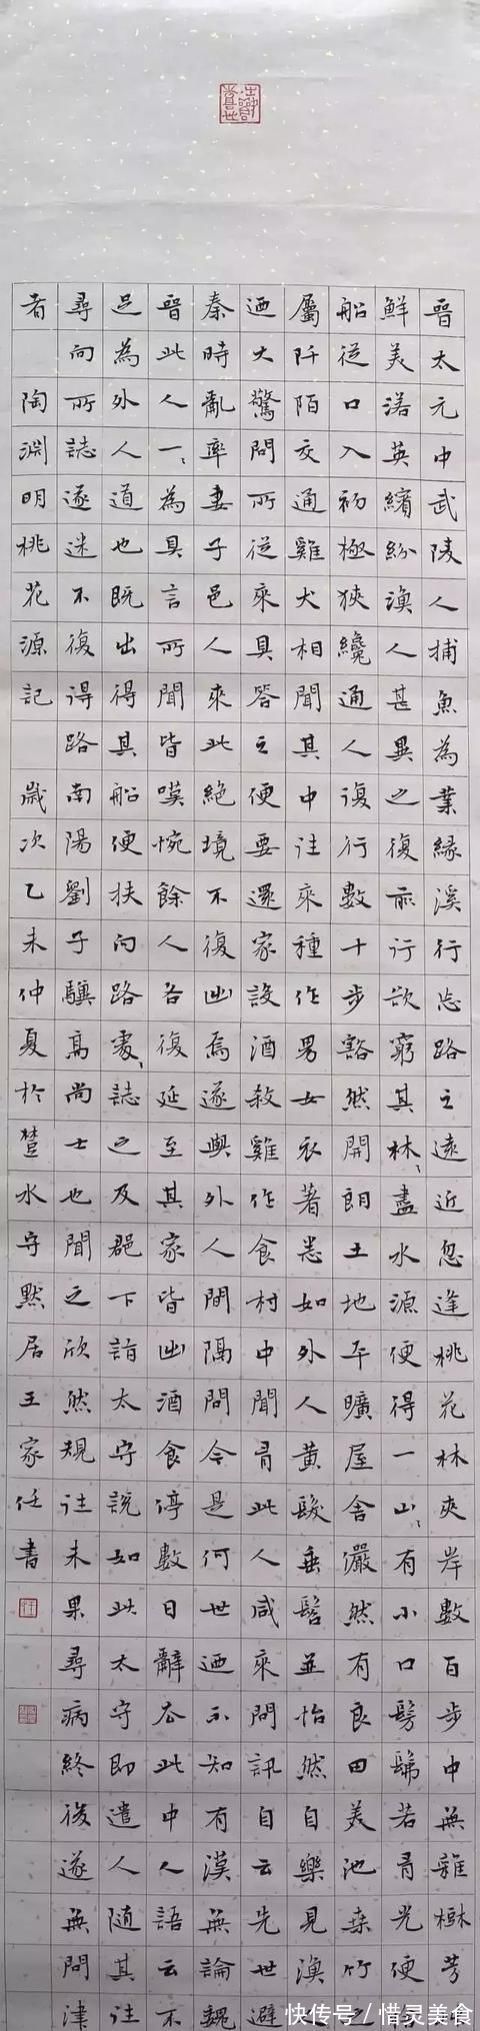 晉太元中武陵人捕魚為業緣溪行忘路之遠近忽逢桃花林夾岸數百步中無雜樹芳
鮮美落英繽紛漁人甚異之復前行欲窮其林、盡水源便得一山、有小口髣髴若有光便
船從口入初極狹纔通人復行數十步豁然開朗土地平曠屋舍儼然有良田美池桑竹之
屬阡陌交通雞犬相聞其中往來種作男女衣著悉如外人黃髮垂髫並怡然自樂見漁
迺大驚問所從來具答之便要還家設酒殺雞作食村中聞有此人咸來問訊自云先世避
秦時亂率妻子邑人來此絕境不復出焉遂與外人間隔問今是何世迺不知有漢無論魏
晉此人一、為具言所聞皆嘆惋餘人各復延至其家皆出酒食停數日辭去此中人語云不
足為外人道也既出得其船便扶向路處、誌之及郡下詣太守說如此太守即遣人隨其往
尋向所誌遂迷不復得路南陽劉子驥高尚士也聞之欣然規往未果尋病終後遂無問津
者 陶淵明桃花源記 歲次乙未仲夏於楚水守默居王家任書
快传号/惜灵美食